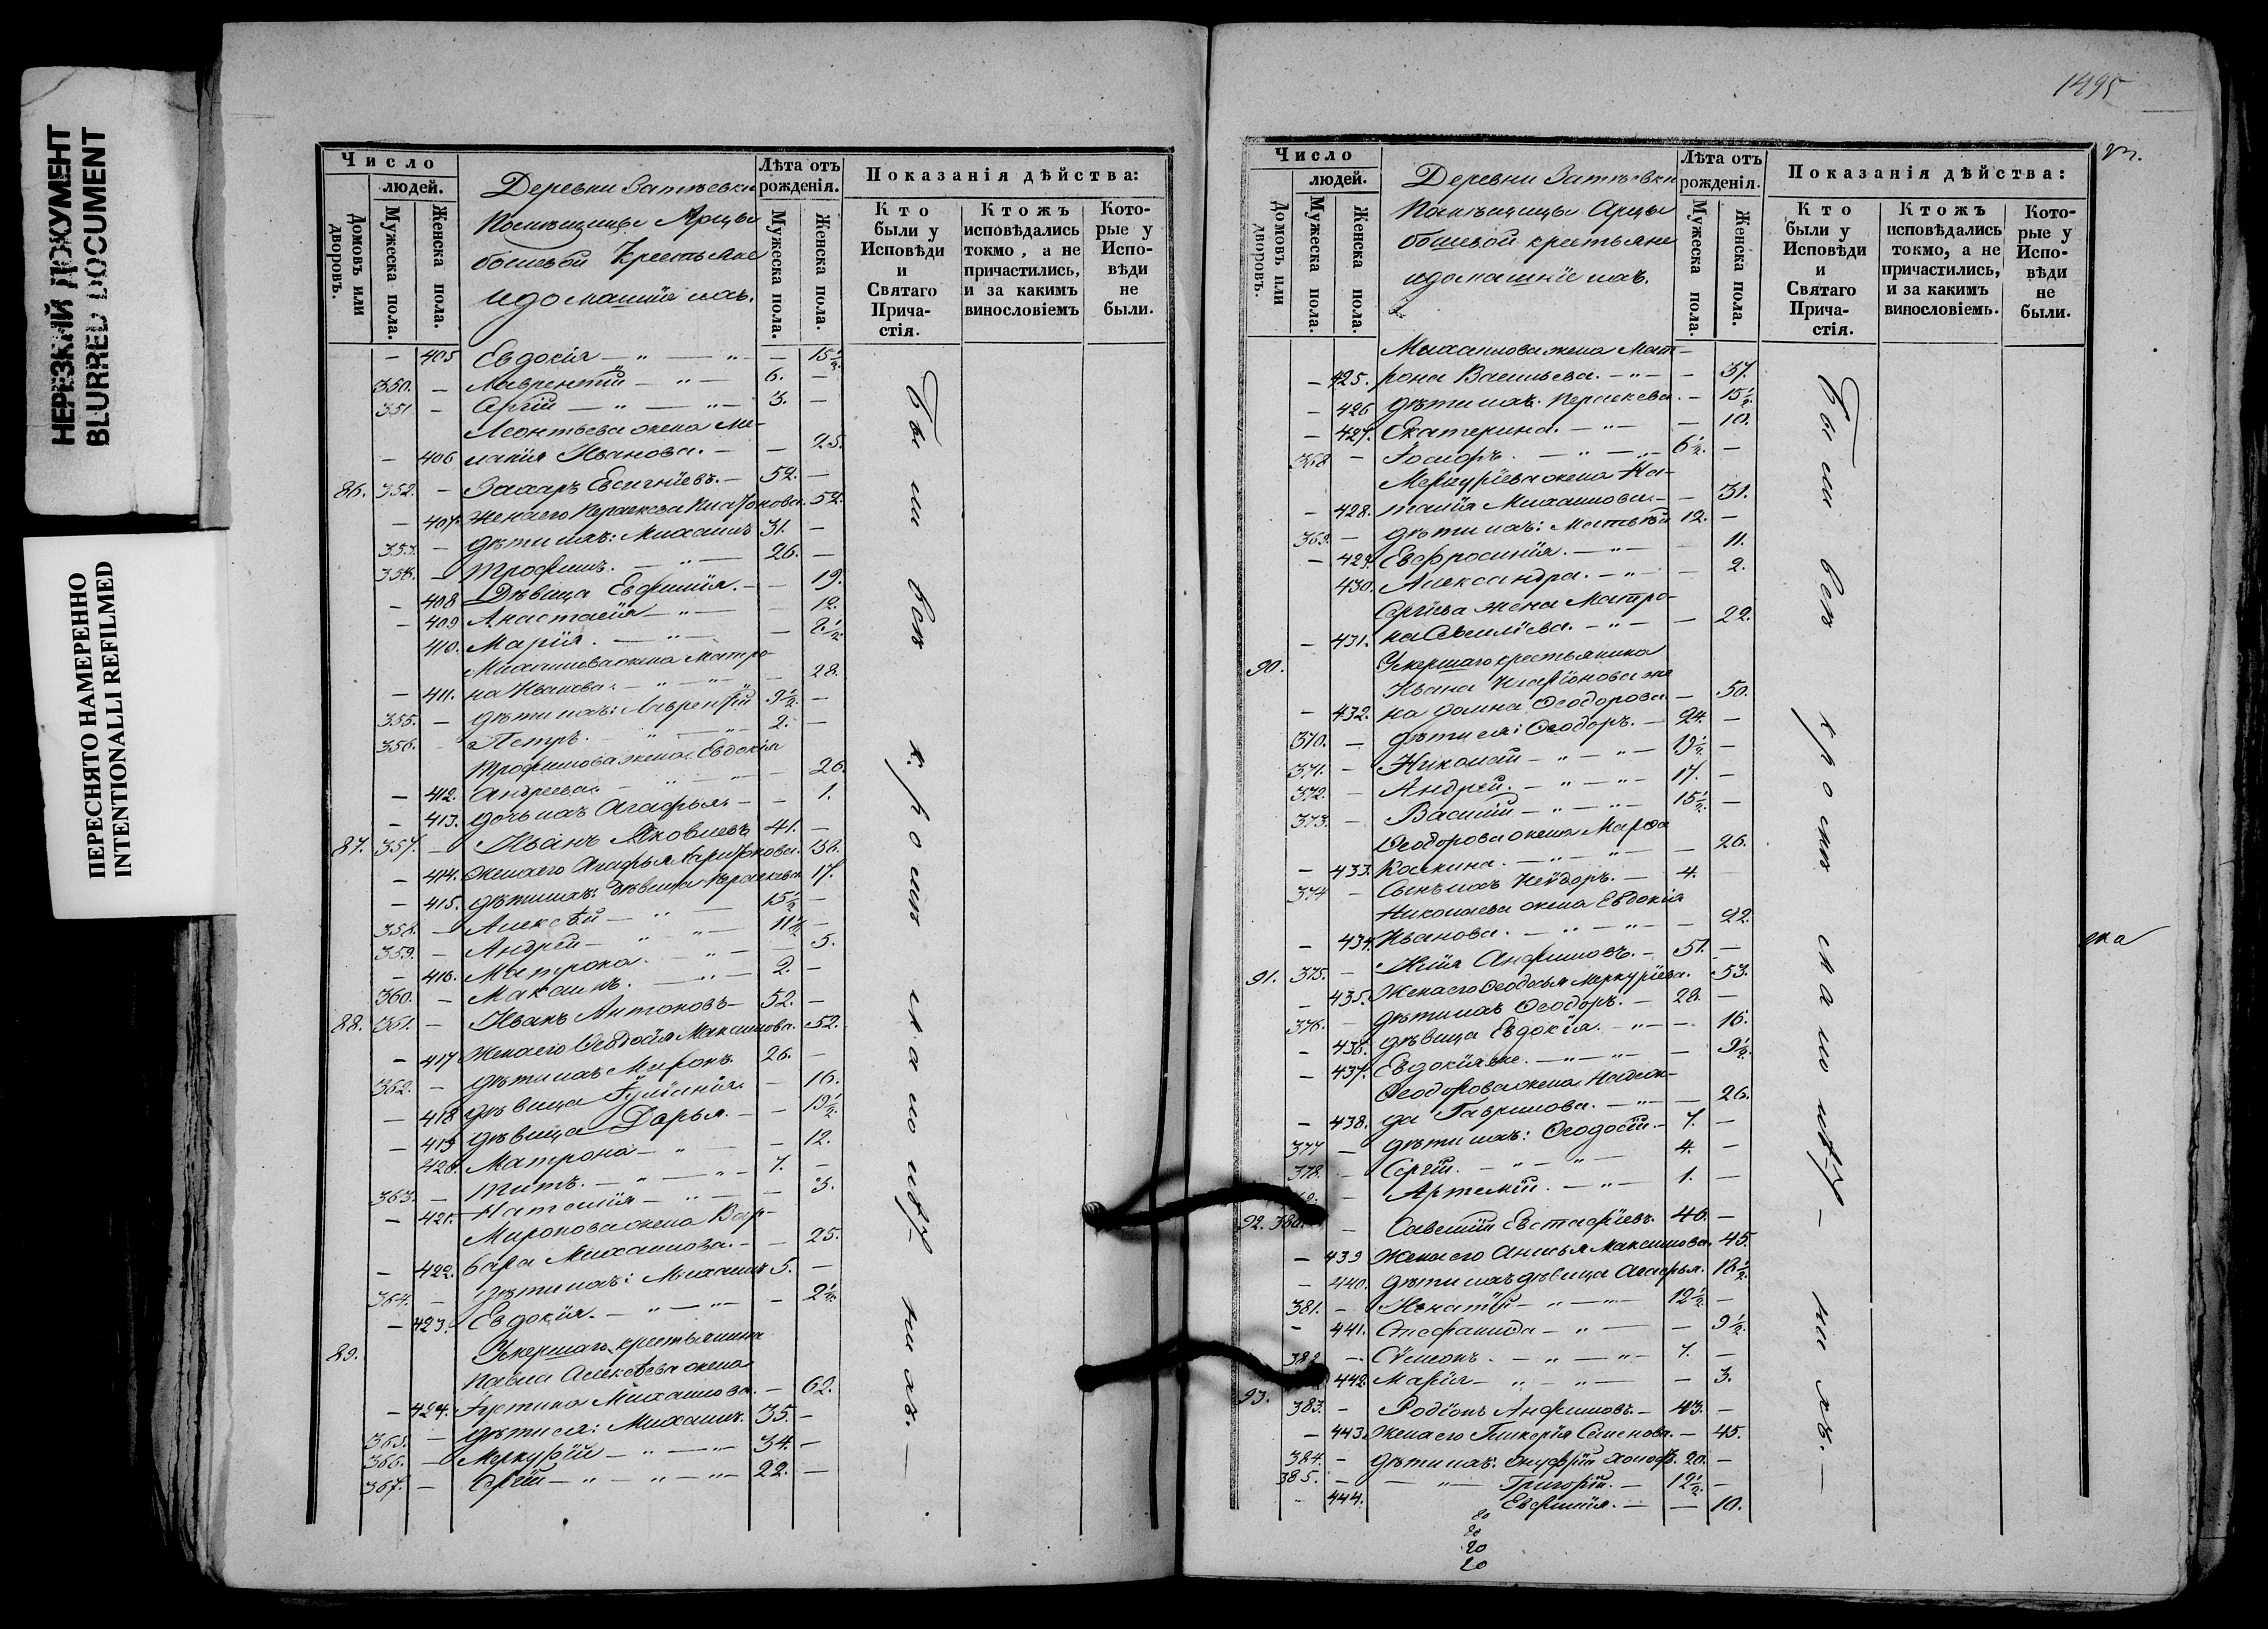 НЕРЕЗКИЙ ДОКУМЕНТ
BLURRED DOCUMENT
ПЕРЕСНЯТО НАМЕРЕННО
INTENTIONALLI REFILMED
Число
людей.
Домовъ или дворовъ.
Мужеска пола.
Женска пола.
Деревни Затѣевки
Помѣщицы Арцы
бошевой Крестьяне
и домашніе ихъ.
Лѣта отъ рожденія.
Мужеска пола.
Женска пола.
Показанія дѣйства:
Кто были у Исповѣди и Святаго Прича-стія.
Ктожъ исповѣдались токмо, а не причастились, и за какимъ винословіемъ
Кото-рые у Испо-вѣди не были.
— 405 Евдокія — " — " — — 15½
350. — Лаврентій — " — 6. —
351 — Сергій — " — " — 3. —
Леонтьева жена Ме-
— 406 ланія Иванова. — — 25.
86. 352. — Захаръ Евсигніевъ. — 52. —
— 407. Жена его Параскева 52.
353. — Дѣти ихъ: Михаилъ 31. —
354. — Трофимъ. — " — 26. —
— 408 Дѣвица Евфимія. — — 19.
— 409 Анастасія — " — — 12.
410. Марія. — " — — 8½
Михайлова жена Матро-
— 411. на Иванова. — " — " — — 28.
355. — дѣти ихъ: Лаврентій 3½ —
356. — Петръ. — " — " — 2. —
Трофимова жена Евдокія
— 412. Андреева. — " — " — — 26.
— 413. дочь ихъ Агафья. — — 1.
87. 357. — Иванъ Яковлевъ 41. —
— 414. Жена его Агафья Ларіонова. 38.
— 415. дѣти ихъ: дѣвица Параскева 17.
358. — Алексѣй — " — 15½ —
359. — Андрей — " — " — 11½ —
— 416. Матрона. — " — — 5.
360. — Максимъ. — " — 2. —
88. 361. — Иванъ Антоновъ — 52. —
— 417 Жена его Ѳеодосія Максимова. 52.
362. — дѣти ихъ Миронъ 26. —
— 418 дѣвица Іуліанія — 16.
— 419 дѣвица Дарья. — — 13½
420. Матрона — " — — 12.
363. — Титъ. — " — " — 7. —
— 421. Наталія — " — — 3.
Миронова жена Вар-
— 422. вара Михаилова. — — 25.
364. — дѣти ихъ: Михаилъ 5. —
— 423. Евдокія. — " — " — — 2½
89. Умершаго крестьянина
Павла Алексѣева жена
— 424. Іустина Михаилова. — 62.
365. — дѣти ея: Михаилъ. 35. —
366. — Меркурій — " — " — 34. —
367. — Сергій — " — " — " — 22. —
Были всѣ кромѣ малолѣт-нихъ. —
1495
Число
людей.
Домовъ или дворовъ.
Мужеска пола.
Женска пола.
Деревни Затѣевки
Помѣщицы Арцы
бошевой крестьяне
и домашніе ихъ.
Лѣта отъ рожденія.
Мужеска пола.
Женска пола.
Показанія дѣйства:
Кто были у Исповѣди и Святаго Прича-стія.
Ктожъ исповѣдались токмо, а не причастились, и за какимъ винословіемъ.
Кото-рые у Испо-вѣди не были.
Михаилова жена Мат-
— 425. рона Васильева. — " — — 37.
— 426 дѣти ихъ: Параскева. — 15½
— 427. Екатерина. — " — — 10.
368 — Іосифъ. — " — " — 6½ —
Меркуріева жена На-
— 428. талія Михаилова. — — 31.
369. — дѣти ихъ: Матвѣй 12. —
— 429. Евфросинія. — " — — 11.
430. Александра. — " — — 2.
Сергіева жена Матро-
— 431. на Савеліева. — " — — 22.
90. Умершаго крестьянина
Ивана Иларіонова же
— 432. на Домна Ѳеодорова — 50.
370. — дѣти ея: Ѳеодоръ. — 24. —
371. — Николай — " — " — 19½ —
372. — Андрей. — " — " — 17. —
373. — Василій — " — " — 15½ —
Ѳеодорова жена Марѳа
— 433. Космина. — " — " — — 26.
374 — Сынъ ихъ Исидоръ. — 4. —
Николаева жена Евдокія
— 434. Иванова. — " — " — — 22.
91. 375. — Илія Анфимовъ. — 51. —
— 435. Жена его Ѳеодосья Меркуріева. 53.
376. — дѣти ихъ Ѳеодоръ. — 28. —
— 436. дѣвица Евдокія. — " — — 16.
— 437. Евдокія же. — " — " — — 9½
Ѳеодорова жена Надеж-
— 438. да Гаврилова. — " — — 26.
377 — дѣти ихъ: Ѳеодосій. — 7. —
378. — Сергій. — " — " — 4. —
— Артемій. — " — 1. —
92. 380. — Савелій Евстафіевъ. 46. —
— 439 Жена его Анисья Максимова. 45.
— 440. дѣти ихъ дѣвица Агафья. 18½
381. — Игнатій — " — " — 12½ —
— 441. Стефанида — " — — 9½
382 — Сѵмеонъ. — " — " — 7. —
442. Марія — " — " — — 3.
93. 383. — Родіонъ Анфимовъ. — 43. —
— 443. Жена его Гликерія Семенова. — 45.
384. — дѣти ихъ: Онуфрій холост. 20. —
385. — " — Григорій. — 12½ —
444. Евфимія. — — 10.
20
20
20
20
Были всѣ кромѣ малолѣт-нихъ. —